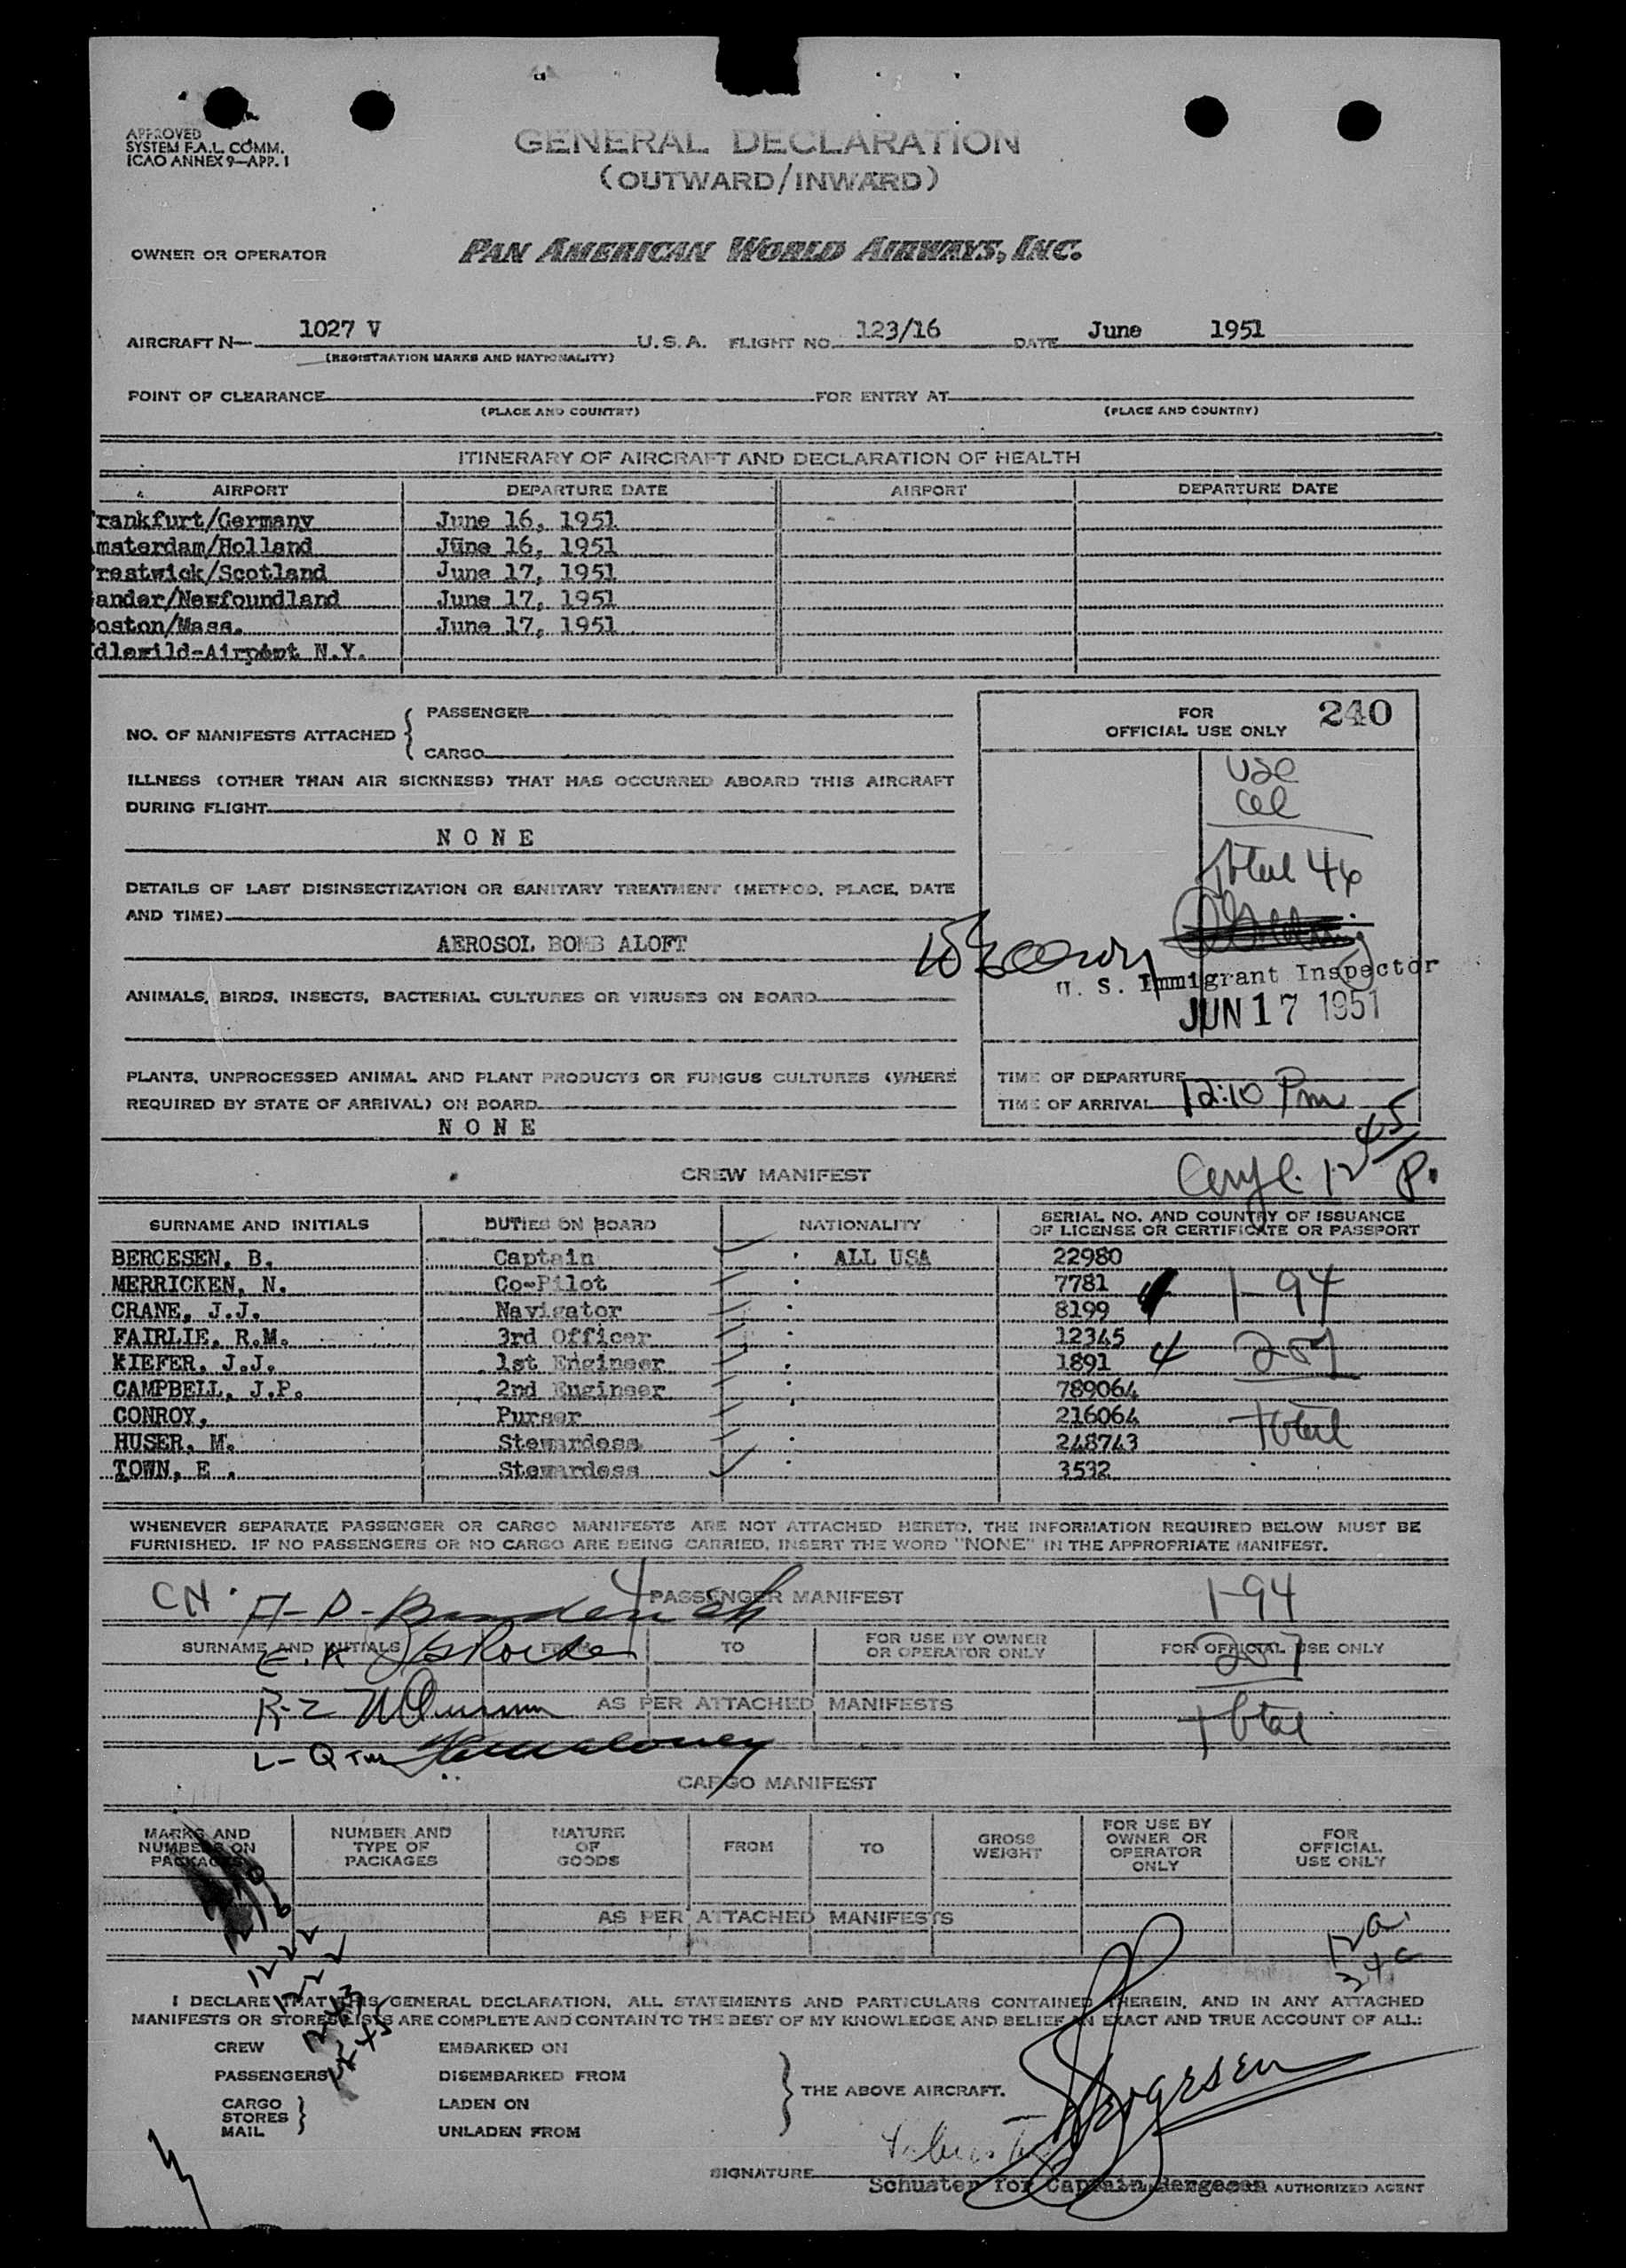 APPROVED
SYSTEM F.A.L. COMM.
ICAO ANNEX 9—APP. 1
GENERAL DECLARATION
(OUTWARD/INWARD)
OWNER OR OPERATOR PAN AMERICAN WORLD AIRWAYS, INC.
AIRCRAFT N— 1027 V U.S.A. FLIGHT NO. 123/16 DATE June 1951
(REGISTRATION MARKS AND NATIONALITY)
POINT OF CLEARANCE FOR ENTRY AT
(PLACE AND COUNTRY) (PLACE AND COUNTRY)
ITINERARY OF AIRCRAFT AND DECLARATION OF HEALTH
AIRPORT DEPARTURE DATE AIRPORT DEPARTURE DATE
rankfurt/Germany June 16, 1951
msterdam/Holland June 16, 1951
restwick/Scotland June 17, 1951
ander/Newfoundland June 17, 1951
oston/Mass. June 17, 1951
dlewild-Airport N.Y.
NO. OF MANIFESTS ATTACHED { PASSENGER
CARGO
FOR OFFICIAL USE ONLY 240
ILLNESS (OTHER THAN AIR SICKNESS) THAT HAS OCCURRED ABOARD THIS AIRCRAFT
DURING FLIGHT
N O N E
total 46
DETAILS OF LAST DISINSECTIZATION OR SANITARY TREATMENT (METHOD, PLACE, DATE
AND TIME)
AEROSOL BOMB ALOFT
U. S. Immigrant Inspector
JUN 17 1951
ANIMALS, BIRDS, INSECTS, BACTERIAL CULTURES OR VIRUSES ON BOARD
PLANTS, UNPROCESSED ANIMAL AND PLANT PRODUCTS OR FUNGUS CULTURES (WHERE
REQUIRED BY STATE OF ARRIVAL) ON BOARD
N O N E
TIME OF DEPARTURE
TIME OF ARRIVAL 12:10 Pm
12 45/P.
CREW MANIFEST
SURNAME AND INITIALS DUTIES ON BOARD NATIONALITY SERIAL NO. AND COUNTRY OF ISSUANCE OF LICENSE OR CERTIFICATE OR PASSPORT
BERGESEN, B. Captain ALL USA 22980
MERRICKEN, N. Co-Pilot 7781
CRANE, J.J. Navigator 8199
FAIRLIE, R.M. 3rd Officer 12345
KIEFER, J.J. 1st Engineer 1891
CAMPBELL, J.P. 2nd Engineer 789064
CONROY, Purser 216064
HUSER, M. Stewardess 248743
TOWN, E . Stewardess 3532
1-94
257
total
WHENEVER SEPARATE PASSENGER OR CARGO MANIFESTS ARE NOT ATTACHED HERETO, THE INFORMATION REQUIRED BELOW MUST BE
FURNISHED. IF NO PASSENGERS OR NO CARGO ARE BEING CARRIED, INSERT THE WORD "NONE" IN THE APPROPRIATE MANIFEST.
PASSENGER MANIFEST
1-94
257
total
SURNAME AND INITIALS FROM TO FOR USE BY OWNER OR OPERATOR ONLY FOR OFFICIAL USE ONLY
AS PER ATTACHED MANIFESTS
CARGO MANIFEST
MARKS AND NUMBERS ON PACKAGES NUMBER AND TYPE OF PACKAGES NATURE OF GOODS FROM TO GROSS WEIGHT FOR USE BY OWNER OR OPERATOR ONLY FOR OFFICIAL USE ONLY
AS PER ATTACHED MANIFESTS
I DECLARE THAT THIS GENERAL DECLARATION, ALL STATEMENTS AND PARTICULARS CONTAINED THEREIN, AND IN ANY ATTACHED
MANIFESTS OR STORES LISTS ARE COMPLETE AND CONTAIN TO THE BEST OF MY KNOWLEDGE AND BELIEF AN EXACT AND TRUE ACCOUNT OF ALL:
CREW EMBARKED ON
PASSENGERS DISEMBARKED FROM
CARGO LADEN ON
STORES
MAIL UNLADEN FROM
THE ABOVE AIRCRAFT.
SIGNATURE Schuster for Captain Bergesen AUTHORIZED AGENT